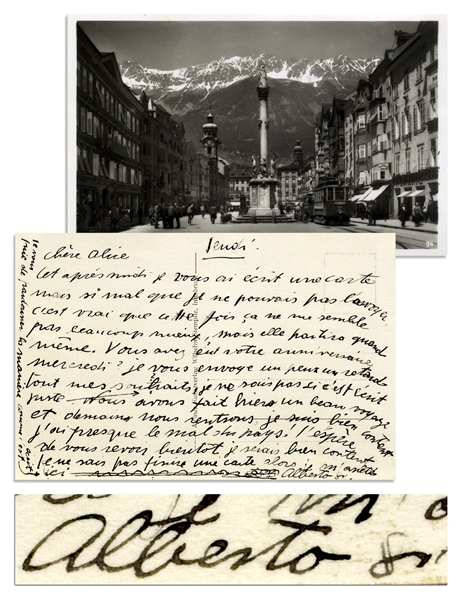 54
Jeudi.
chère Alice
Cet après midi je vous ai écrit une carte
mais si mal que je ne pouvais pas l'envoyer,
c'est vrai que cette fois ça ne me semble
pas beaucoup mieux, mais elle partira quand
même. Vous avez eut votre anniversaire
mercredi? je vous envoye un peu en retard
tout mes souhaits, je ne sais pas si c'est écrit
juste Nous avons fait hier un beau voyage
et demain nous rentrons, je suis bien content
j'ai presque le mal du pays! J'espère
de vous revoir bientot, je serais bien content
je ne sais pas finire une carte alors m'arrête
ici
Alberto
je vous
prie de pardonner la manière
Alberto